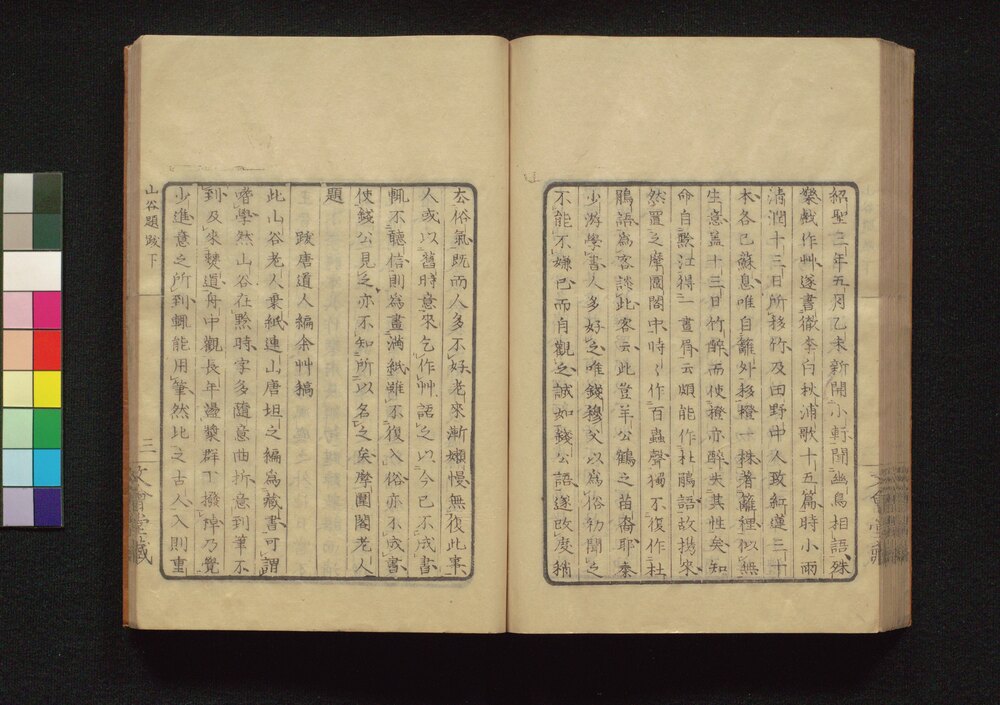 紹聖三年五月乙未新開小軒聞幽鳥相語殊
樂戲作艸遂書徹李白秋浦歌十五篇時小雨
清潤十三日所移竹及田野中人致紅蓮三十
本各已蘇息唯自籬外移橙一株著籬裡似無
生意盖十三日竹醉而使橙亦醉失其性矣知
命自黔江得一畫眉云頗能作杜鵑語故携來
然置之摩圍閣中時〻作百蟲聲獨不復作杜
鵑語爲客談此客云此豈羊公鶴之苗裔耶秦
少游學書人多好之唯錢穆父以爲俗初聞之
不能不嫌已而自觀之誠如錢公語遂改度稍
去俗氣既而人多不好老來漸嬾慢無復此事
人或以舊時意來乞作艸語之以今已不成書
輒不聽信則爲畫滿紙雖不復入俗亦不成書
使錢公見之亦不知所以名之矣摩圍閣老人
題
跋唐道人編余艸稿
此山谷老人棄紙連山唐坦之編爲藏書可謂
嗜學然山谷在黔時字多隨意曲折意到筆不
到及來僰道舟中觀長年盪槳群丁撥棹乃覺
少進意之所到輒能用筆然比之古人入則重
山谷題跋下
三
文會堂藏